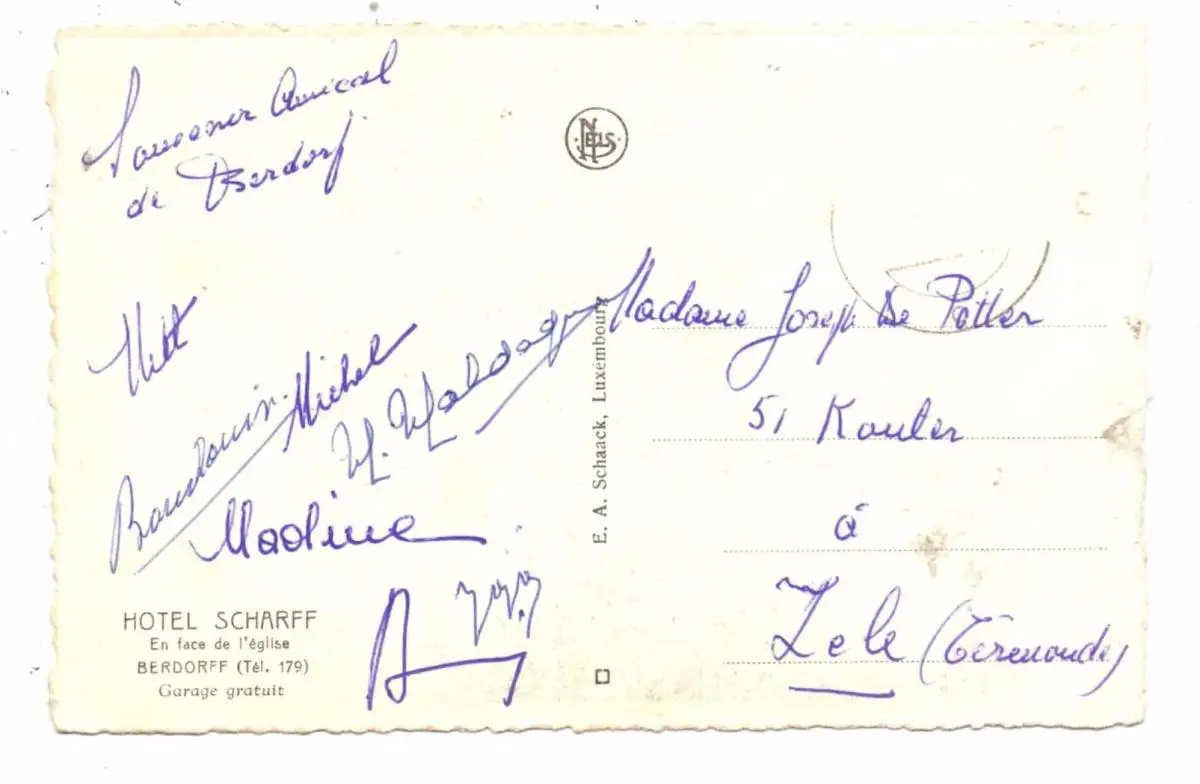 Souvenir Amical
de Berdorf
Baudouin.
Michel
Nadine
HOTEL SCHARFF
En face de l'église
BERDORFF (Tél. 179)
Garage gratuit
NELS
E. A. Schaack, Luxembourg
Madame Joseph De Potter
51 Kouter
à
Zele (Termonde)